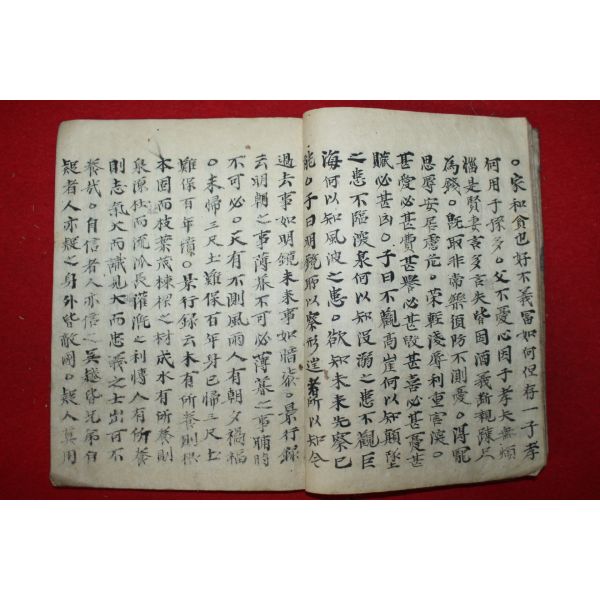 〇家和貧也好不義富如何但存一子孝
何用子孫多〇父不憂心因子孝夫無煩
惱是賢妻言多言失皆因酒義断親踈只
為錢〇旣取非常樂須防不測憂〇得寵
思辱安居慮危〇榮輕淺辱利重害深〇
甚愛必甚費甚譽必甚毁甚喜必甚憂甚
贓必甚〇子曰不觀高崖何以知顚墜
之患不臨深泉何以知沒溺之患不觀巨
海何以知風波之患〇欲知未来先察已
〇子曰明鏡所以察形徃者所以知今
過去事如明鏡未来事如暗漆〇景行錄
云明朝之事薄暮不可必薄暮之事晡時
不可必〇天有不測風雨人有朝夕禍福
〇未歸三尺土難保百年身已歸三尺土
難保百年墳〇景行錄云木有所養則根
本固而枝葉茂棟樑之材成水有所養則
泉源壯而流派長灌漑之利博人有所養
則志氣大而識見大而忠義之士出可不
養哉〇自信者人亦信之吳越皆兄弟自
疑者人亦疑之身外皆敵國〇疑人莫用